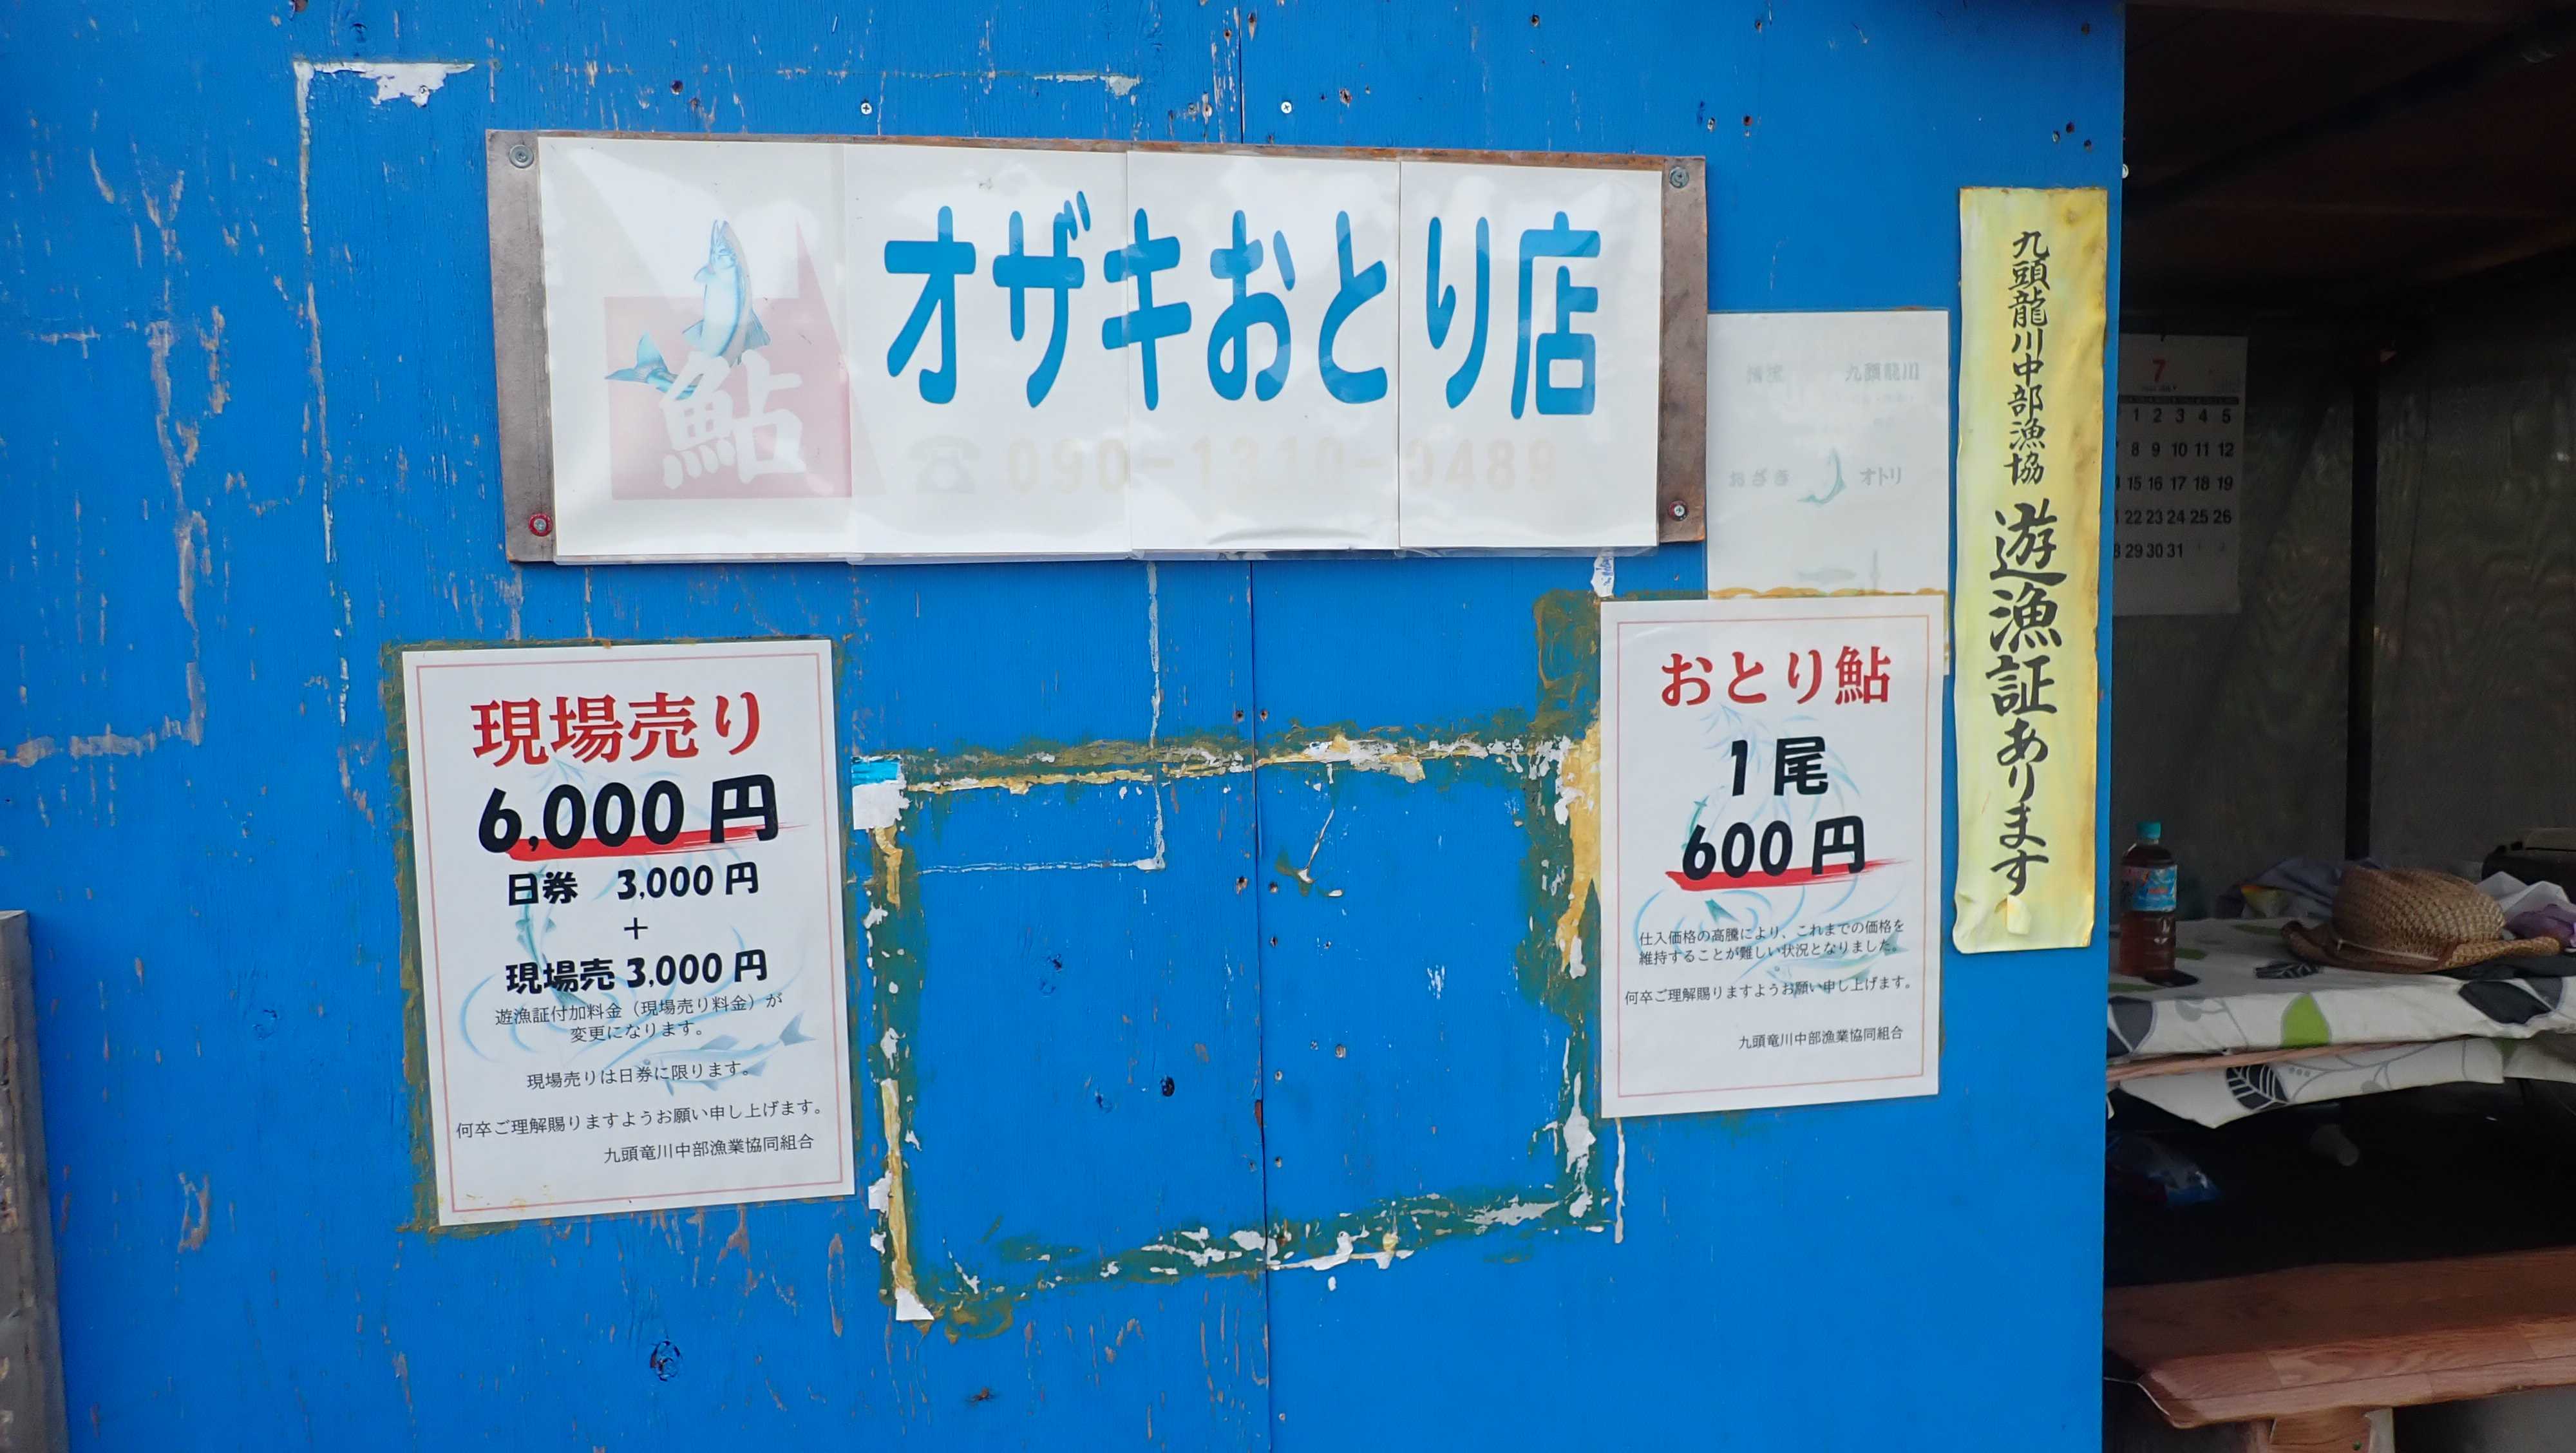 オザキおとり店
鮎
おざき オトリ
九頭龍川
九頭龍川中部漁協 遊漁証あります
現場売り
6,000円
日券 3,000円
+
現場売 3,000円
遊漁証付加料金（現場売り料金）が
変更になります。
現場売りは日券に限ります。
何卒ご理解賜りますようお願い申し上げます。
九頭竜川中部漁業協同組合
おとり鮎
1尾
600円
仕入価格の高騰により、これまでの価格を
維持することが難しい状況となりました。
何卒ご理解賜りますようお願い申し上げます。
九頭竜川中部漁業協同組合
7
1 2 3 4 5
8 9 10 11 12
15 16 17 18 19
22 23 24 25 26
29 30 31